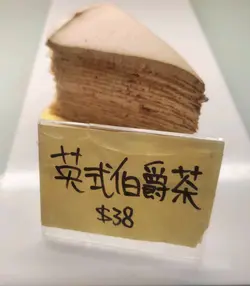 英式伯爵茶
$38